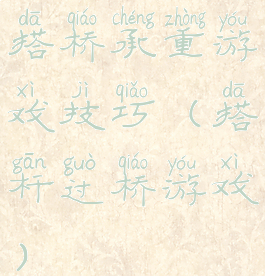 dā qiáo chéng zhòng yóu
搭桥承重游
xì jì qiǎo dā
戏技巧(搭
gān guò qiáo yóu xì
杆过桥游戏
)